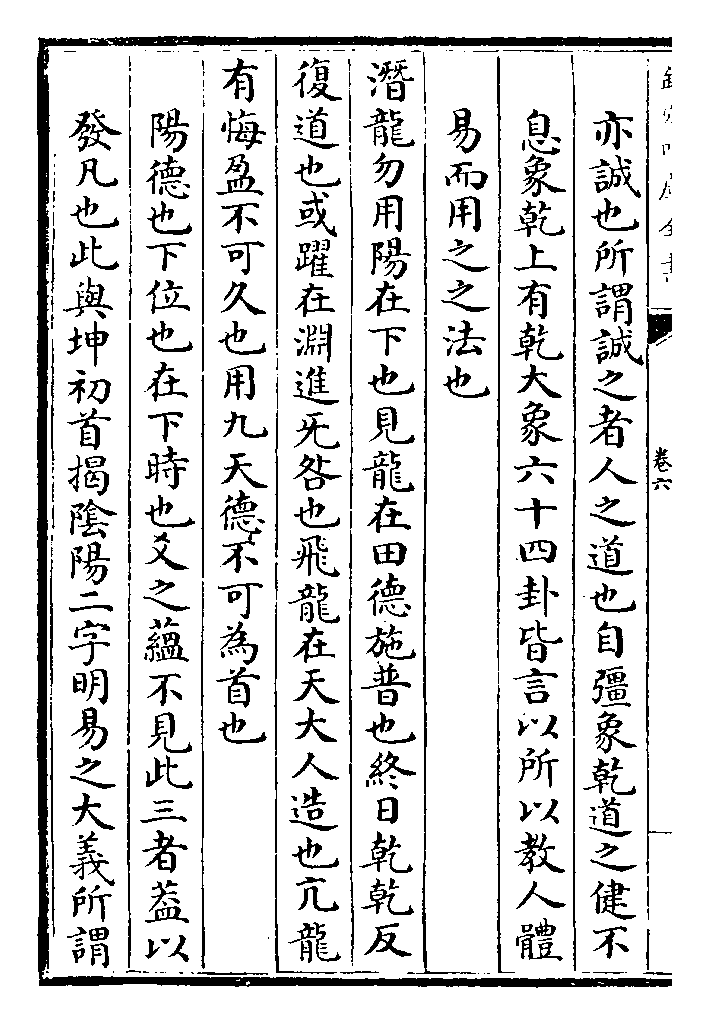 卷六
亦誠也所謂誠之者人之道也自彊象乾道之健不
息象乾上有乾大象六十四卦皆言以所以教人體
易而用之之法也
潛龍勿用陽在下也見龍在田德施普也終日乾乾反
復道也或躍在淵進无咎也飛龍在天大人造也亢龍
有悔盈不可久也用九天德不可為首也
陽德也下位也在下時也爻之蘊不見此三者葢以
發凡也此與坤初首揭隂陽二字明易之大義所謂